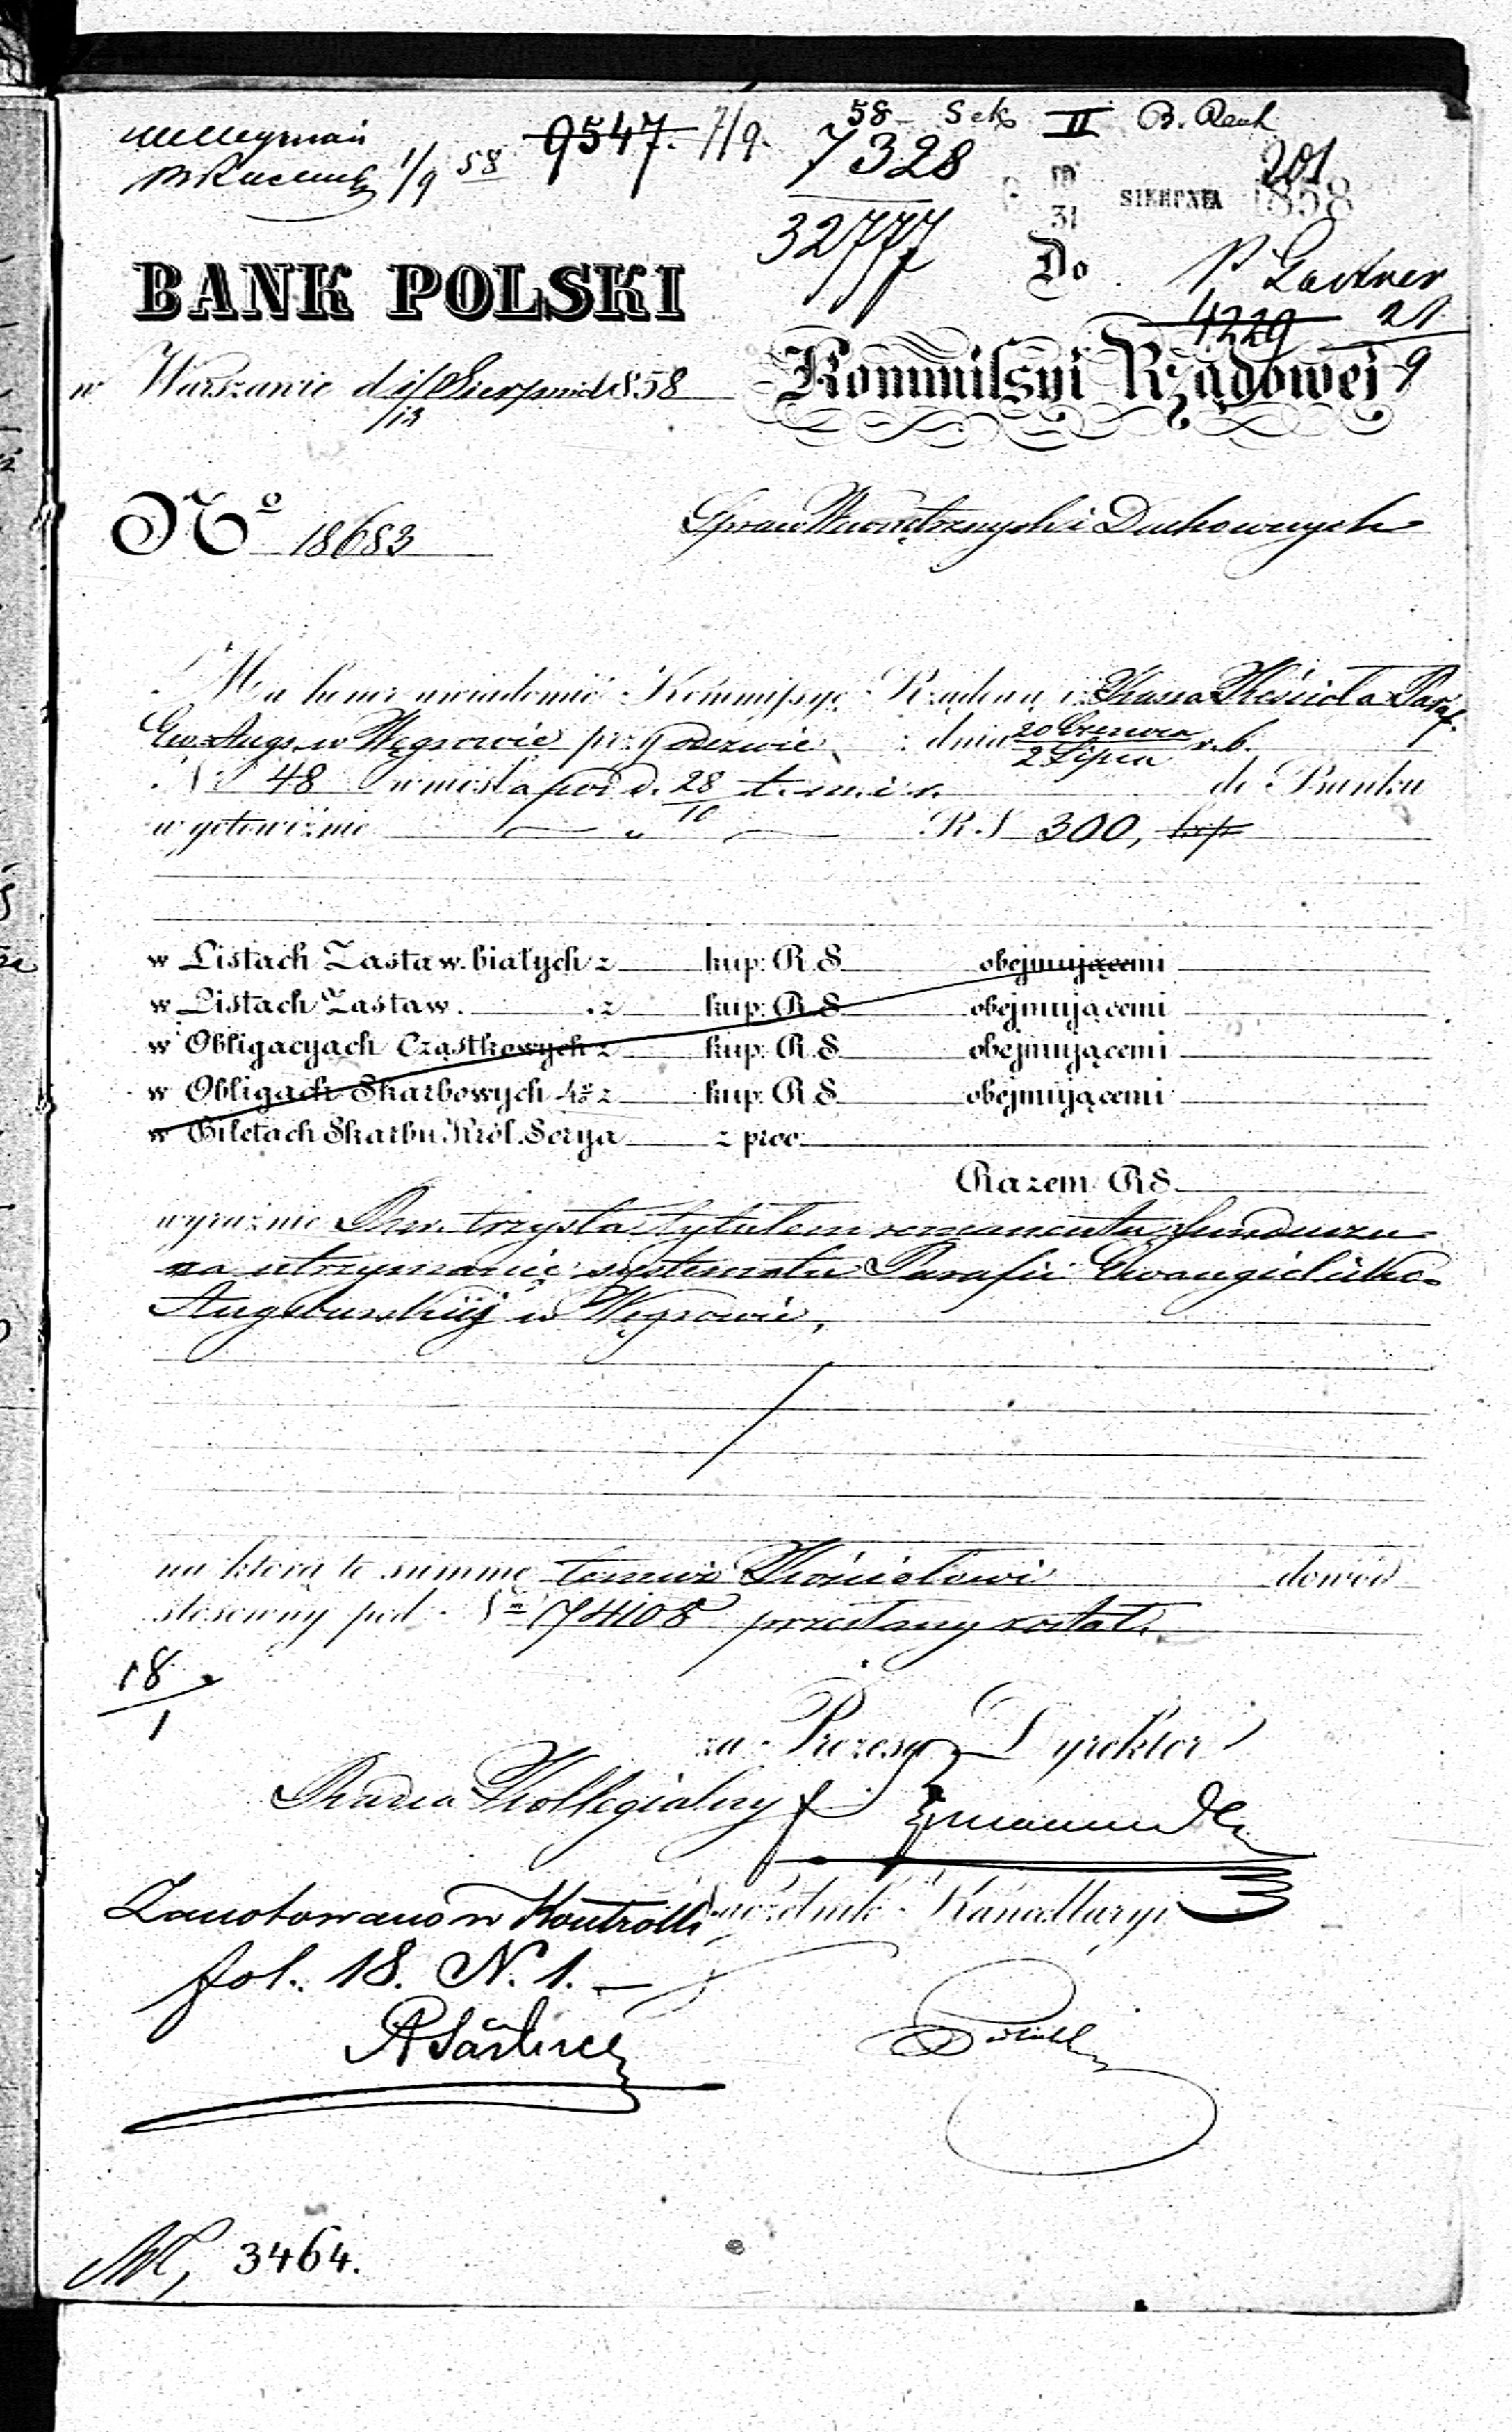 1/9 58 9547. 7/9. 58 Sek II
7328 201
32777 19/31 SIERPNIA 1858
BANK POLSKI
Do
4229 21/9
w Warszawie d. 1/13 Sierpnia 1858
Kommissyi Rządowej
No 18683
Spraw Wewnętrznych i Duchownych
Ma honor uwiadomić Kommissyę Rządową iż Kassa Kościoła Paraf.
Ew. Augs. w Węgrowie przy odezwie z dnia 20 Czerwca / 2 Lipca r. b.
No 48 wniosła pod d. 28/10 t. m. i r. do Banku
w gotowiźnie " R.S 300, kop
w Listach Zastaw. białych z kup: R.S obejmującemi
w Listach Zastaw. z kup: R.S obejmującemi
w Obligacyach Cząstkowych z kup: R.S obejmującemi
w Obligach Skarbowych 4% z kup: R.S obejmującemi
w Biletach Skarbu Król. Serya z proc:
Razem RS.
wyraźnie Rsr. trzysta tytułem remanentu funduszu
na utrzymanie systematu Parafii Ewangielicko-
Augsburskiej w Węgrowie,
na którą to summę temuż Kościołowi dowód
stosowny pod No 74108 przesłany został.
18/1
za Prezesa Dyrektor
Radca Kollegialny
Zanotowano w Kontrolli Naczelnik Kancellaryi
fol. 18. N. 1.
3464.